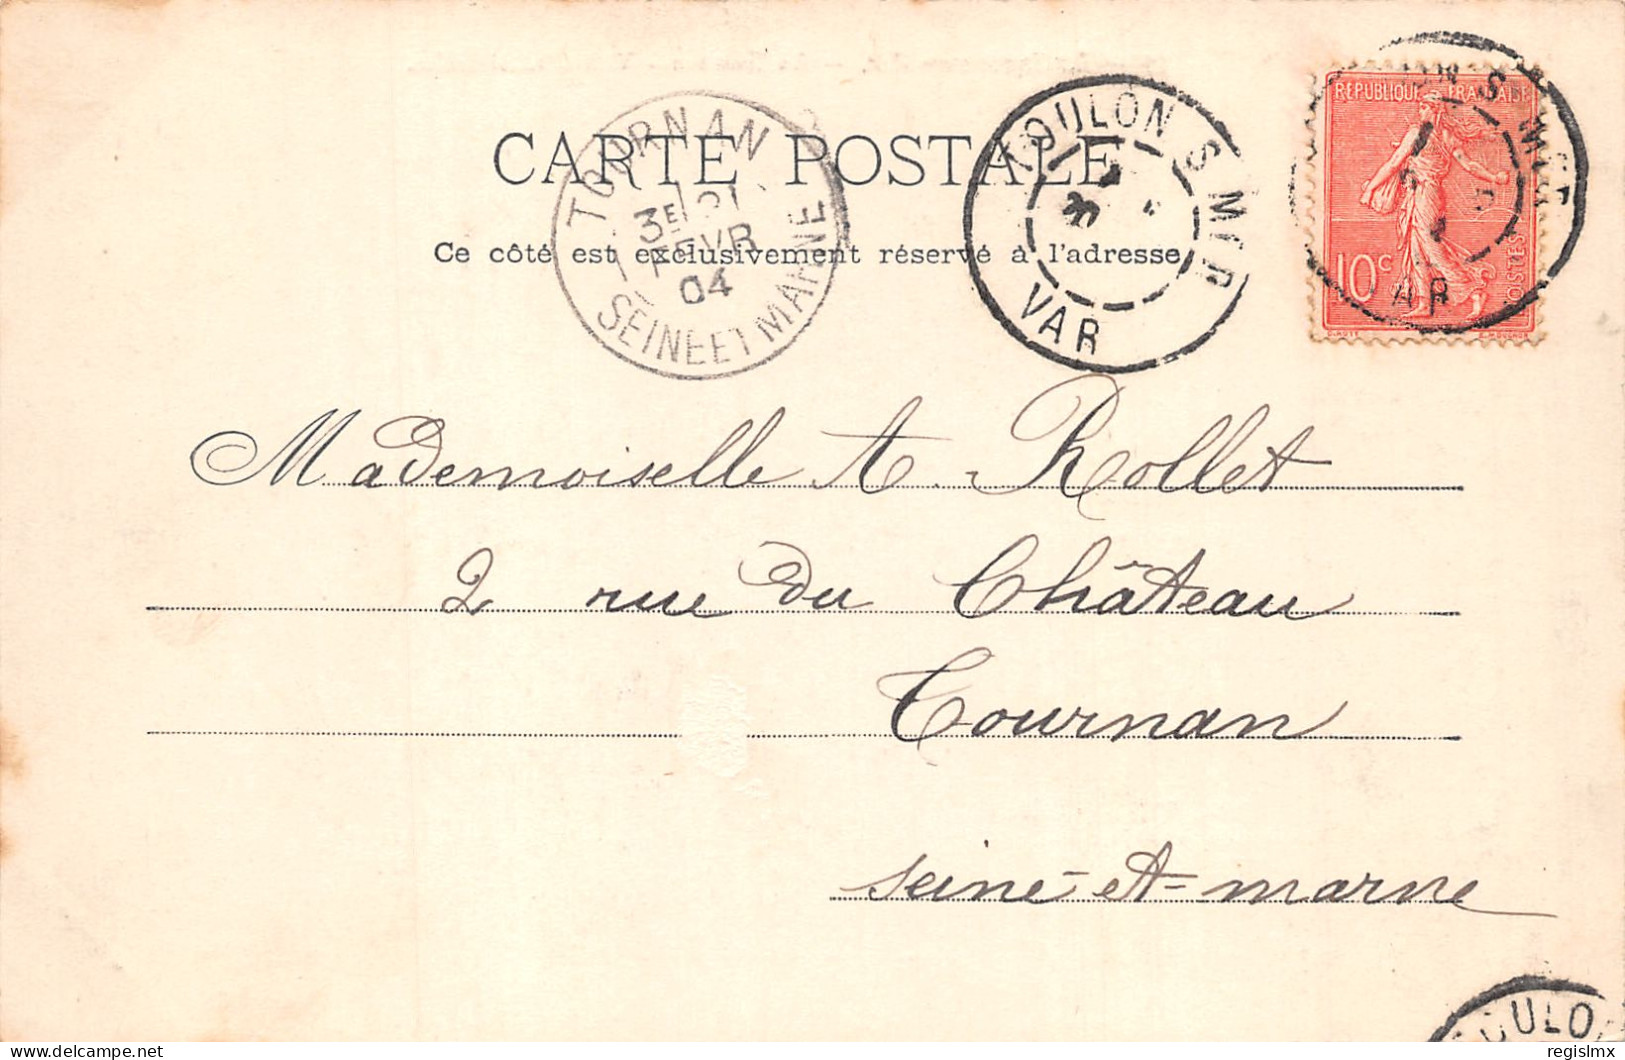 CARTE POSTALE
Ce côté est exclusivement réservé à l'adresse
TOURNAN
3E 21
FEVR
04
SEINE ET MARNE
TOULON S MER
VAR
REPUBLIQUE FRANCAISE
10c
POSTES
S MER
Mademoiselle A. Rollet
2 rue du Château
Tournan
Seine-et-marne
TOULO
delcampe.net
regislmx